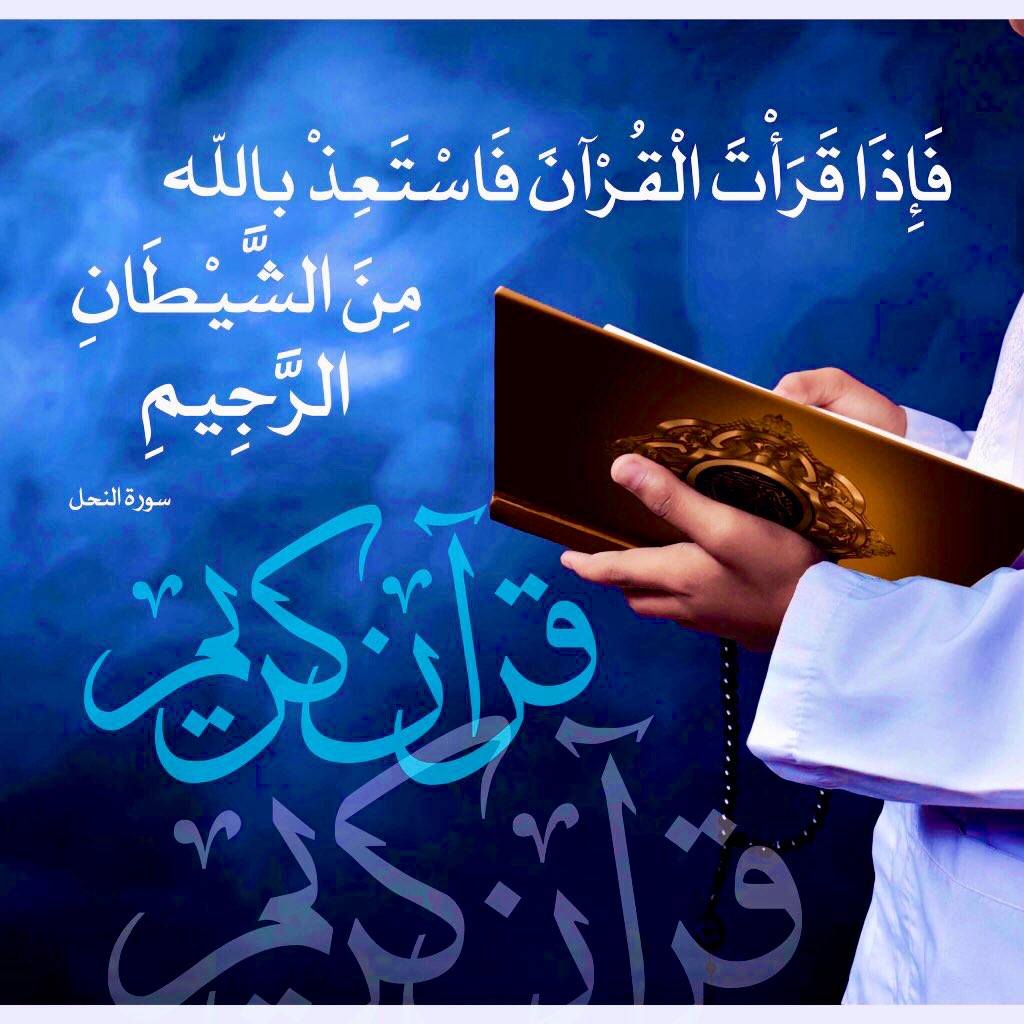 فَإِذَا قَرَأْتَ الْقُرْآنَ فَاسْتَعِذْ بِاللّه
مِنَ الشَّيْطَانِ
الرَّجِيمِ
سورة النحل
قرآن كريم
قرآن كريم